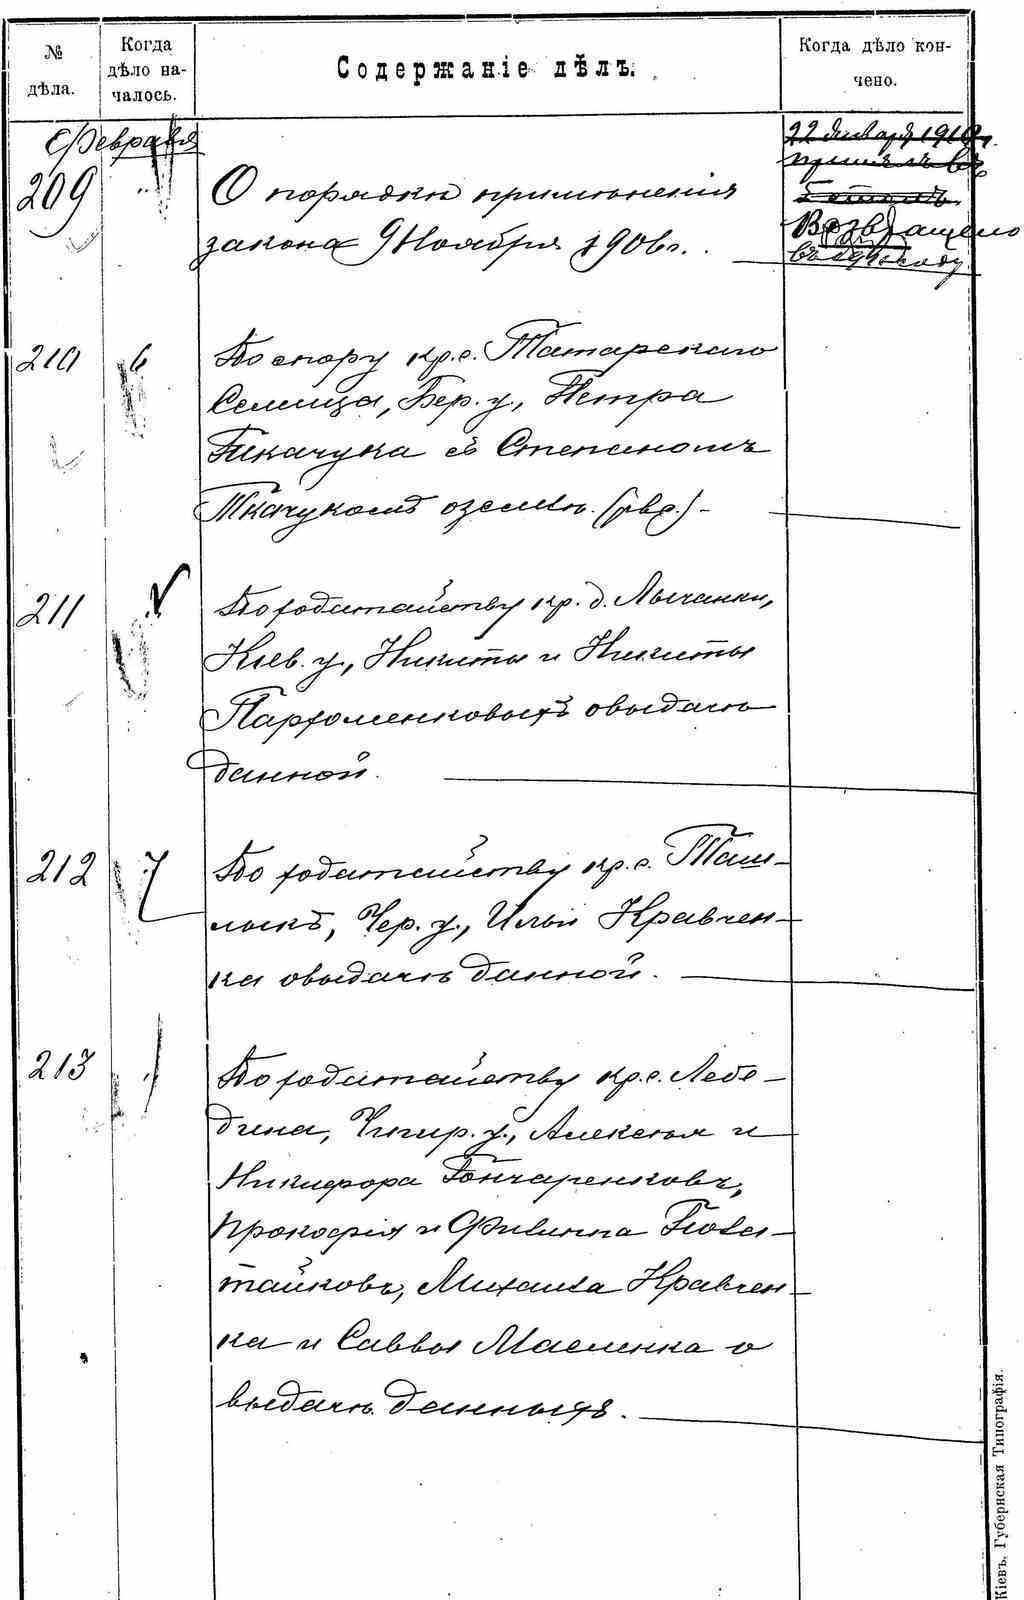 № дѣла.
Когда дѣло на-
чалось.
Содержаніе дѣлъ.
Когда дѣло кон-
чено.
Февраля
22 января 1910 г.
209
О порядкѣ примѣненія
закона 9 Ноября 1906 г.
Возвращено
210
6
По спору кр. с. Татарского
Селища, Бер. у., Петра
Ткачука съ Степаномъ
Ткачукомъ о землѣ.
211
По ходатайству кр. д. Лычанки,
Кіев. у., Никиты и Никиты
Пархоменковыхъ о выдачѣ
данной.
212
7
По ходатайству кр. с. Таш-
лыкъ, Чер. у., Ильи Кравчен-
ка о выдачѣ данной.
213
По ходатайству кр. с. Лебе-
дина, Чигир. у., Алексѣя и
Никифора Гончаренковъ,
Прокофія и Филиппа
тайковъ, Михаила Кравчен-
ка и Саввы Масленка о
выдачѣ данныхъ.
Кіевъ, Губернская Типографія.